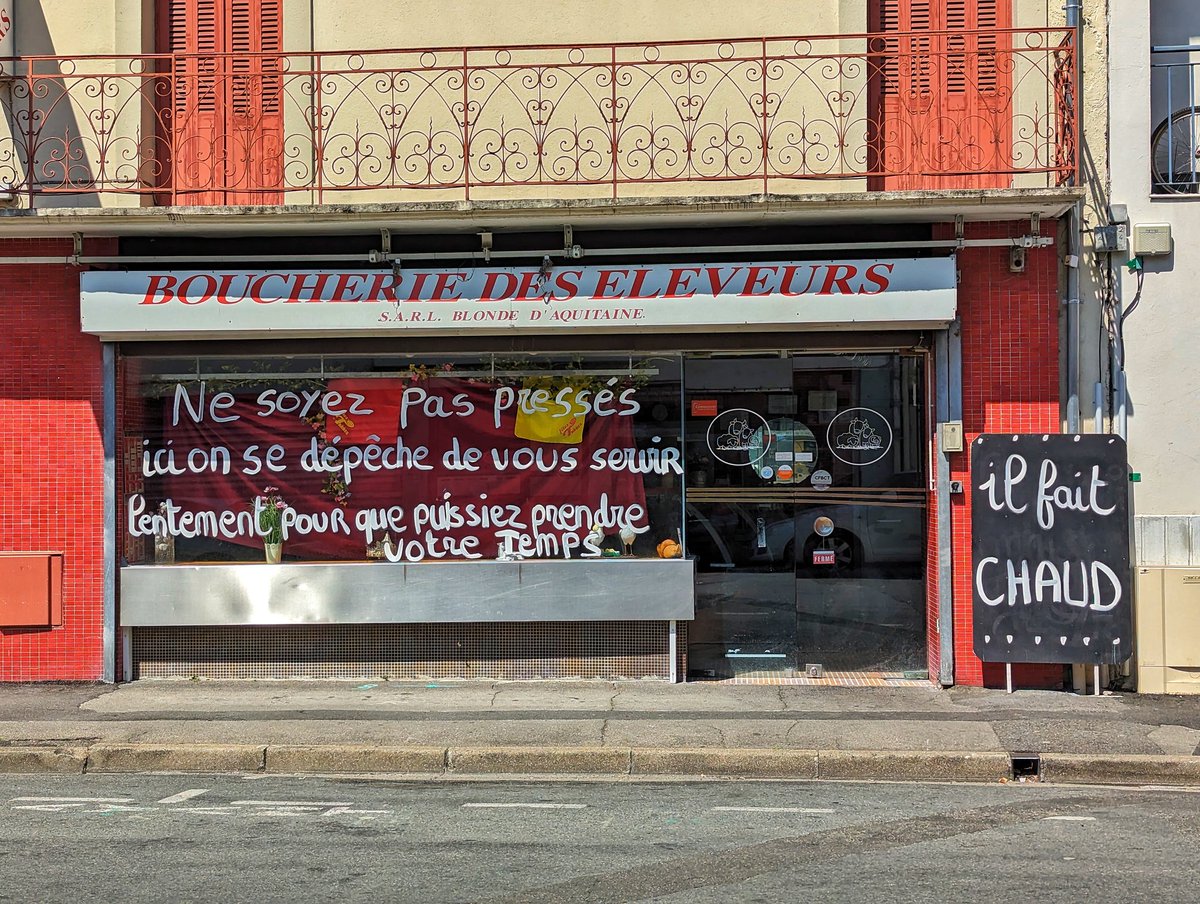 BOUCHERIE DES ELEVEURS
S.A.R.L. BLONDE D'AQUITAINE
Ne soyez pas pressés
ici on se dépêche de vous servir
lentement pour que puissiez prendre
votre Temps
CFBCT
FERMÉ
il fait
CHAUD